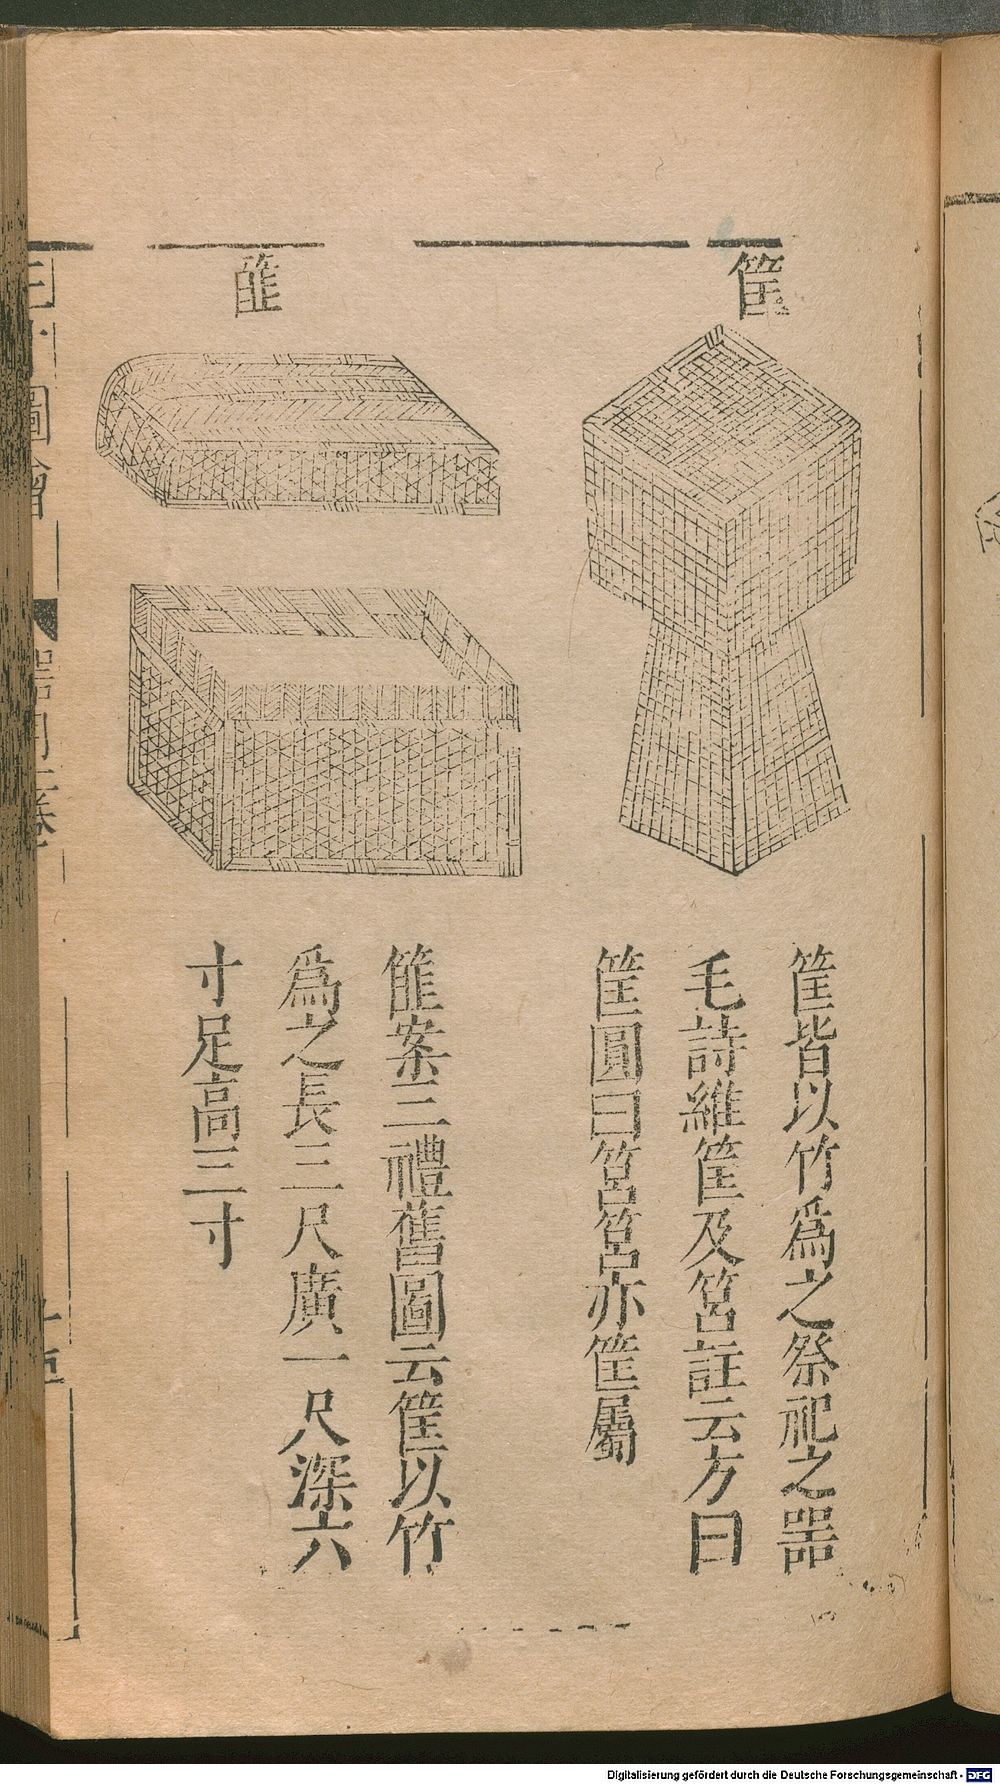 筐
筐皆以竹爲之祭祀之器
毛詩維筐及筥註云方曰
筐圓曰筥筥亦筐屬
篚
篚案三禮舊圖云筐以竹
爲之長三尺廣一尺深六
寸足高三寸
圖會
Digitalisierung gefördert durch die Deutsche Forschungsgemeinschaft - DFG